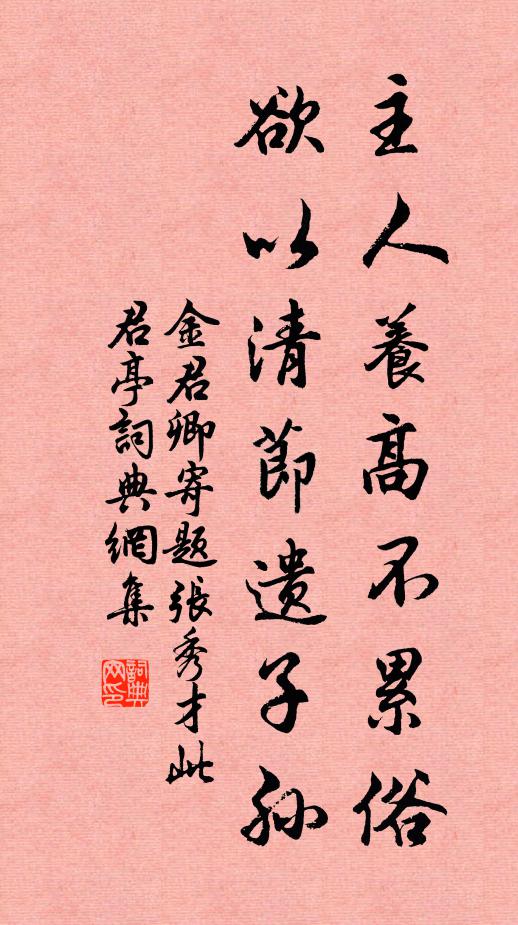 主人養高不累俗
欲以清節遺子孫
金君卿寄題張秀才此
君亭詞典網集
詞典网印